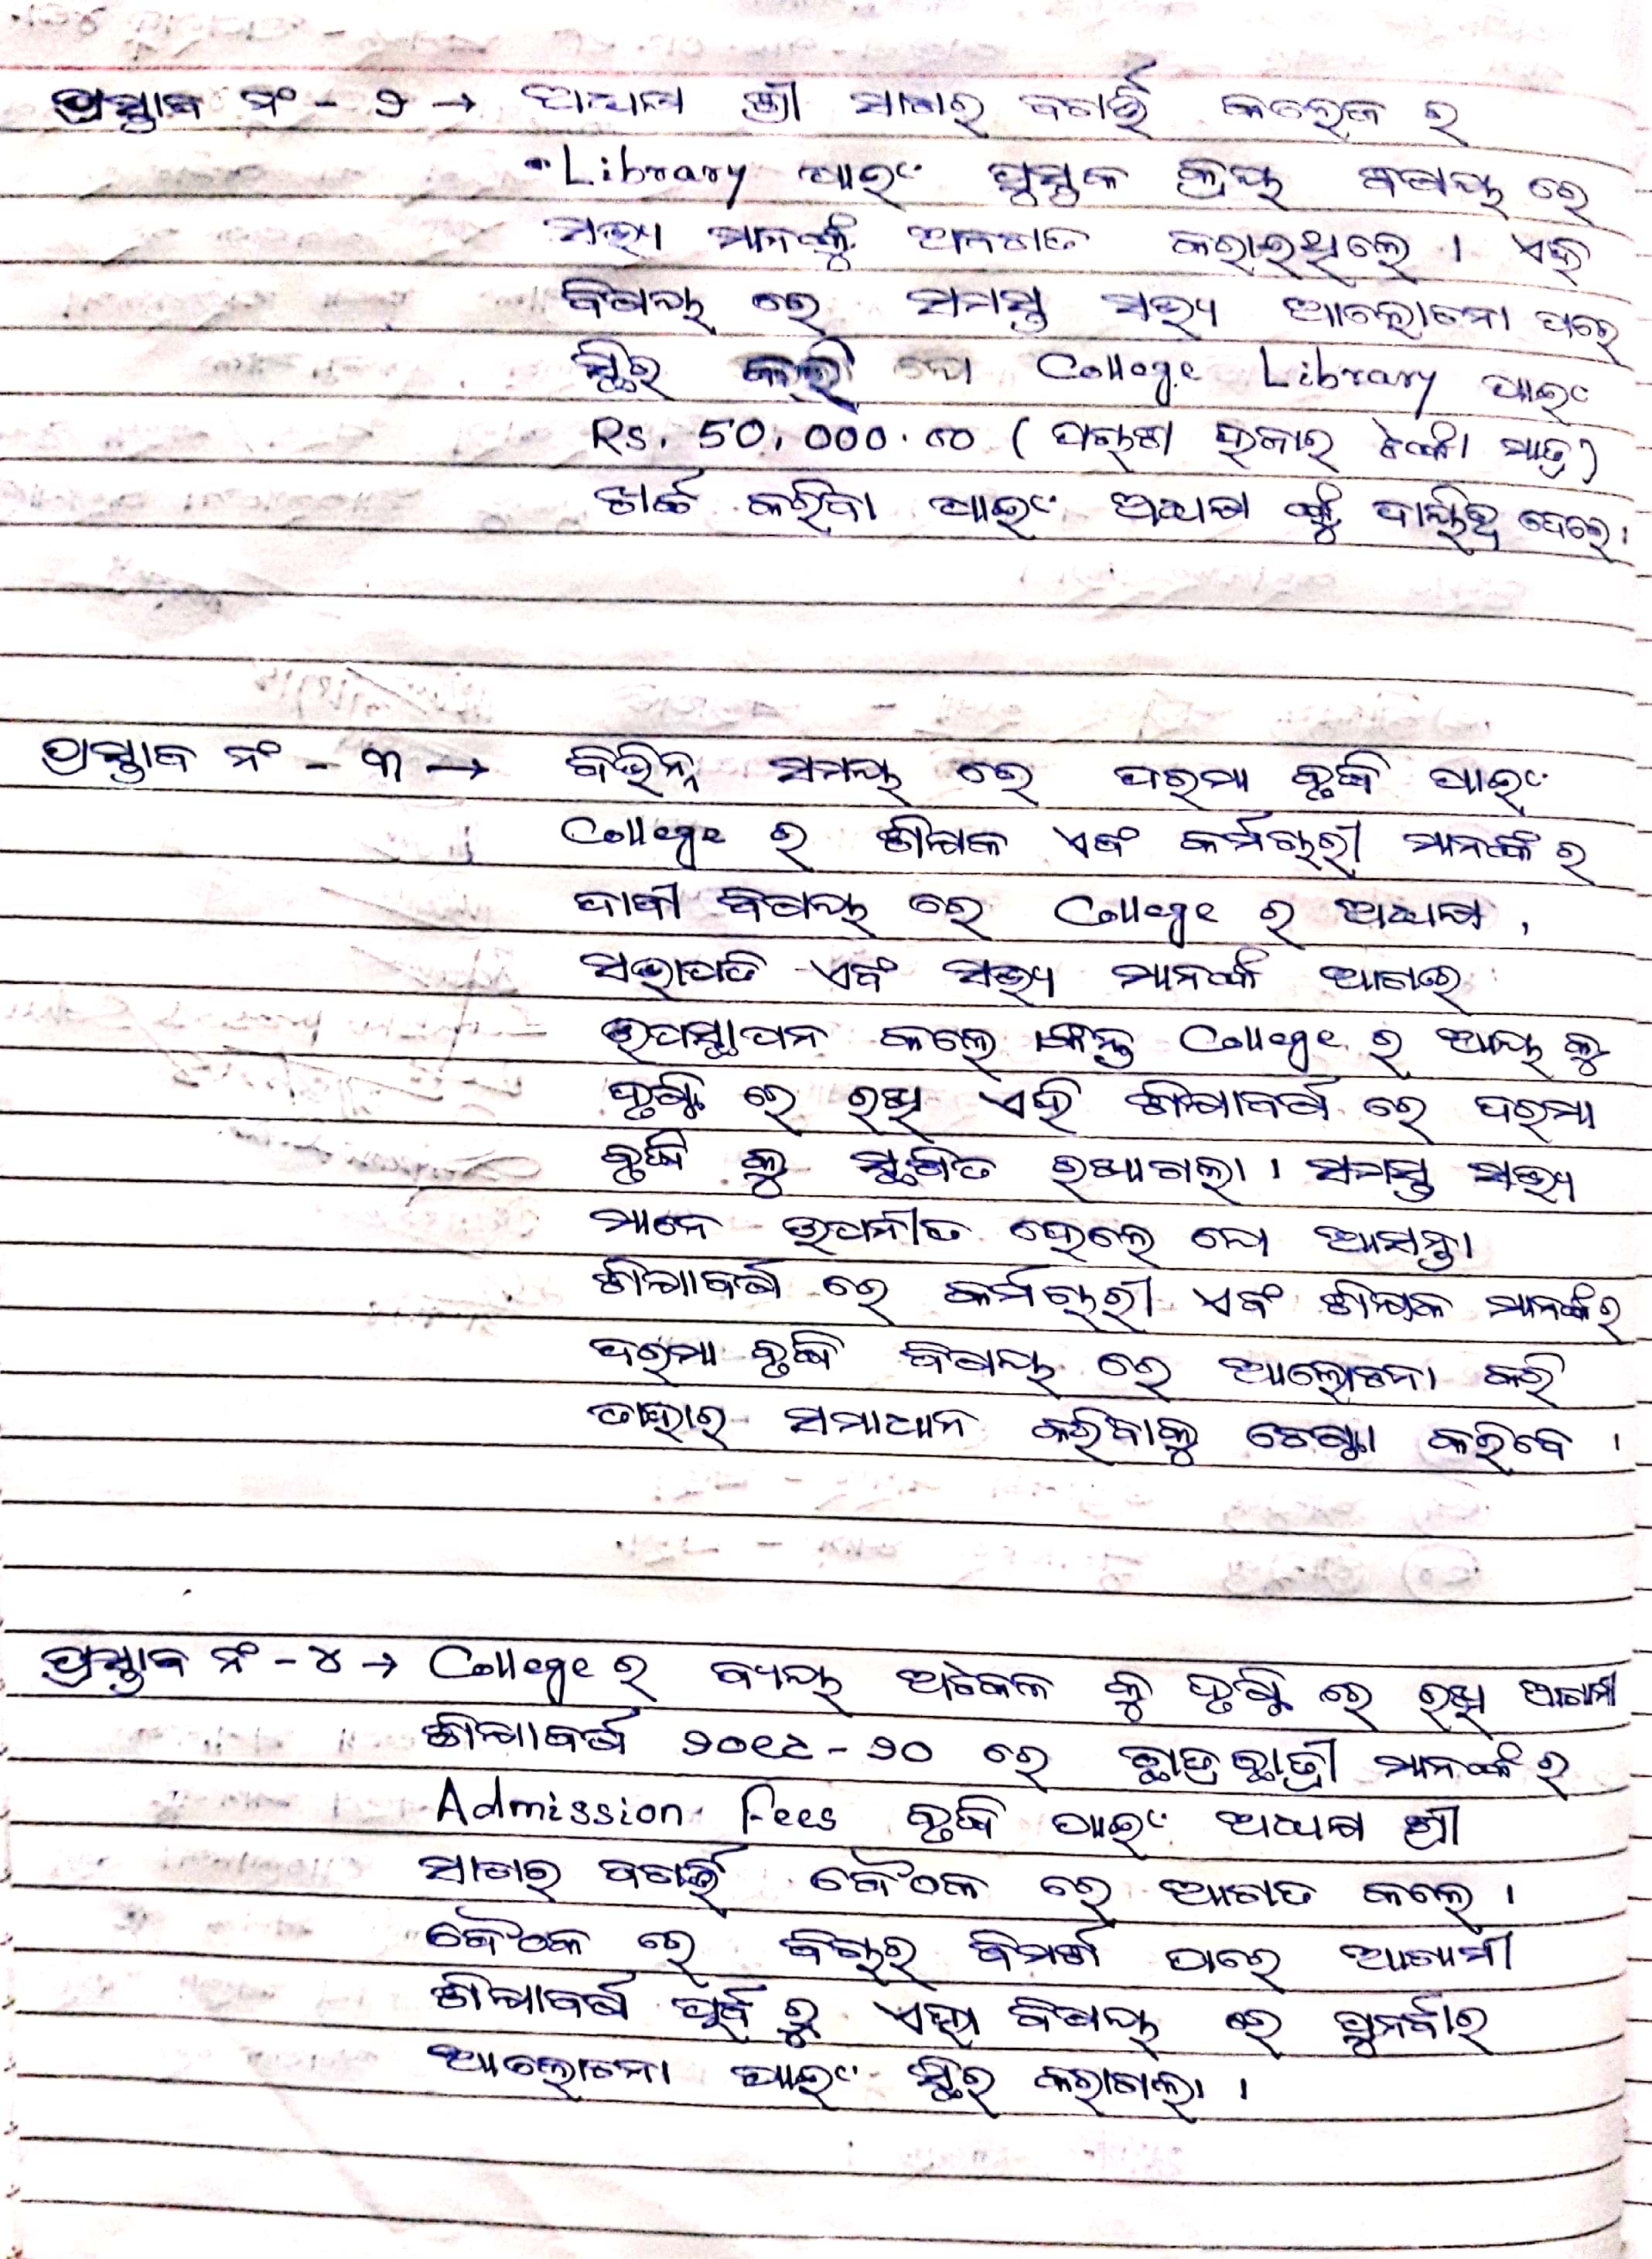 ପ୍ରସ୍ତାବ ନଂ - ୨ → ଅଧ୍ୟକ୍ଷ ଶ୍ରୀ ସାଗର ବଗର୍ତ୍ତି କଲେଜ ର
Library ପାଇଂ ପୁସ୍ତକ କ୍ରୟ ବିଷୟ ରେ
ସଭ୍ୟ ମାନଙ୍କୁ ଅବଗତ କରାଇଥିଲେ । ଏହି
ବିଷୟ ରେ ସମସ୍ତ ସଭ୍ୟ ଆଲୋଚନା ପରେ
ସ୍ଥିର କଲେ ଯେ College Library ପାଇଂ
Rs. 50,000.00 (ପଚାଶ ହଜାର ଟଙ୍କା ମାତ୍ର)
ଖର୍ଚ୍ଚ କରିବା ପାଇଂ ଅଧ୍ୟକ୍ଷ ଙ୍କୁ ଦାୟିତ୍ଵ ଦେଲେ ।
ପ୍ରସ୍ତାବ ନଂ - ୩ → ବିଭିନ୍ନ ସମୟ ରେ ଦରମା ବୃଦ୍ଧି ପାଇଂ
College ର ଶିକ୍ଷକ ଏବଂ କର୍ମଚାରୀ ମାନଙ୍କ ର
ଦାବୀ ବିଷୟ ରେ College ର ଅଧ୍ୟକ୍ଷ ,
ସଭାପତି ଏବଂ ସଭ୍ୟ ମାନଙ୍କ ଆଗରେ
ଉପସ୍ଥାପନ କଲେ କିନ୍ତୁ College ର ଆୟ କୁ
ଦୃଷ୍ଟି ରେ ରଖି ଏହି ଶିକ୍ଷାବର୍ଷ ରେ ଦରମା
ବୃଦ୍ଧି କୁ ସ୍ଥଗିତ ରଖାଗଲା । ସମସ୍ତ ସଭ୍ୟ
ମାନେ ଉପନୀତ ହେଲେ ଯେ ଆସନ୍ତା
ଶିକ୍ଷାବର୍ଷ ରେ କର୍ମଚାରୀ ଏବଂ ଶିକ୍ଷକ ମାନଙ୍କର
ଦରମା ବୃଦ୍ଧି ବିଷୟ ରେ ଆଲୋଚନା କରି
ତାହାର ସମାଧାନ କରିବାକୁ ଚେଷ୍ଟା କରିବେ ।
ପ୍ରସ୍ତାବ ନଂ - ୪ → College ର ବ୍ୟୟ ଅଟକଳ କୁ ଦୃଷ୍ଟି ରେ ରଖି ଆଗାମୀ
ଶିକ୍ଷାବର୍ଷ ୨୦୧୯ - ୨୦ ରେ ଛାତ୍ରଛାତ୍ରୀ ମାନଙ୍କ ର
Admission Fees ବୃଦ୍ଧି ପାଇଂ ଅଧ୍ୟକ୍ଷ ଶ୍ରୀ
ସାଗର ବଗର୍ତ୍ତି ବୈଠକ ରେ ଆଗତ କଲେ ।
ବୈଠକ ରେ ବିଚାର ବିମର୍ଶ ପରେ ଆଗାମୀ
ଶିକ୍ଷାବର୍ଷ ପୂର୍ବ ରୁ ଏହା ବିଷୟ ରେ ପୁନର୍ବାର
ଆଲୋଚନା ପାଇଂ ସ୍ଥିର କରାଗଲା ।